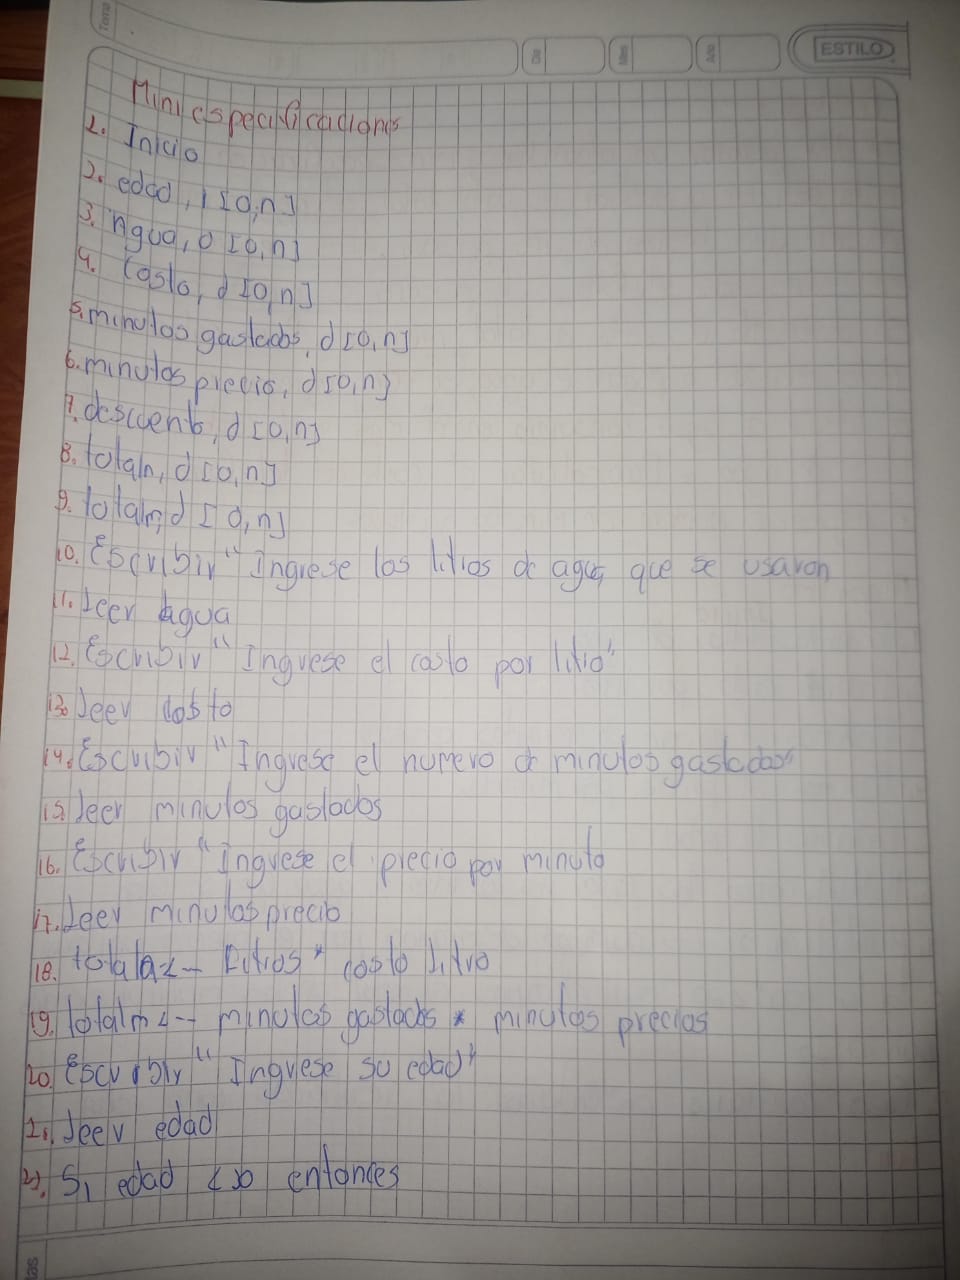 Tema
Dia
Mes
Año
ESTILO
Mini especificaciones
1. Inicio
2. edad, i [0,n]
3. Agua, d [0,n]
4. Costo, d [0,n]
5. minutos gastados, d [0,n]
6. minutos precio, d [0,n]
7. descuento, d [0,n]
8. totaln, d [0,n]
9. totalm, d [0,n]
10. Escribir "Ingrese los litros de agua que se usaron
11. Leer Agua
12. Escribir "Ingrese el costo por litro"
13. Leer costo
14. Escribir "Ingrese el numero de minutos gastados"
15. Leer minutos gastados
16. Escribir "Ingrese el precio por minuto
17. Leer minutos precio
18. totala <-- Litros * costo litro
19. totalm <-- minutos gastados * minutos precios
20. Escribir "Ingrese su edad"
21. Leer edad
22. Si edad < entonces
tas